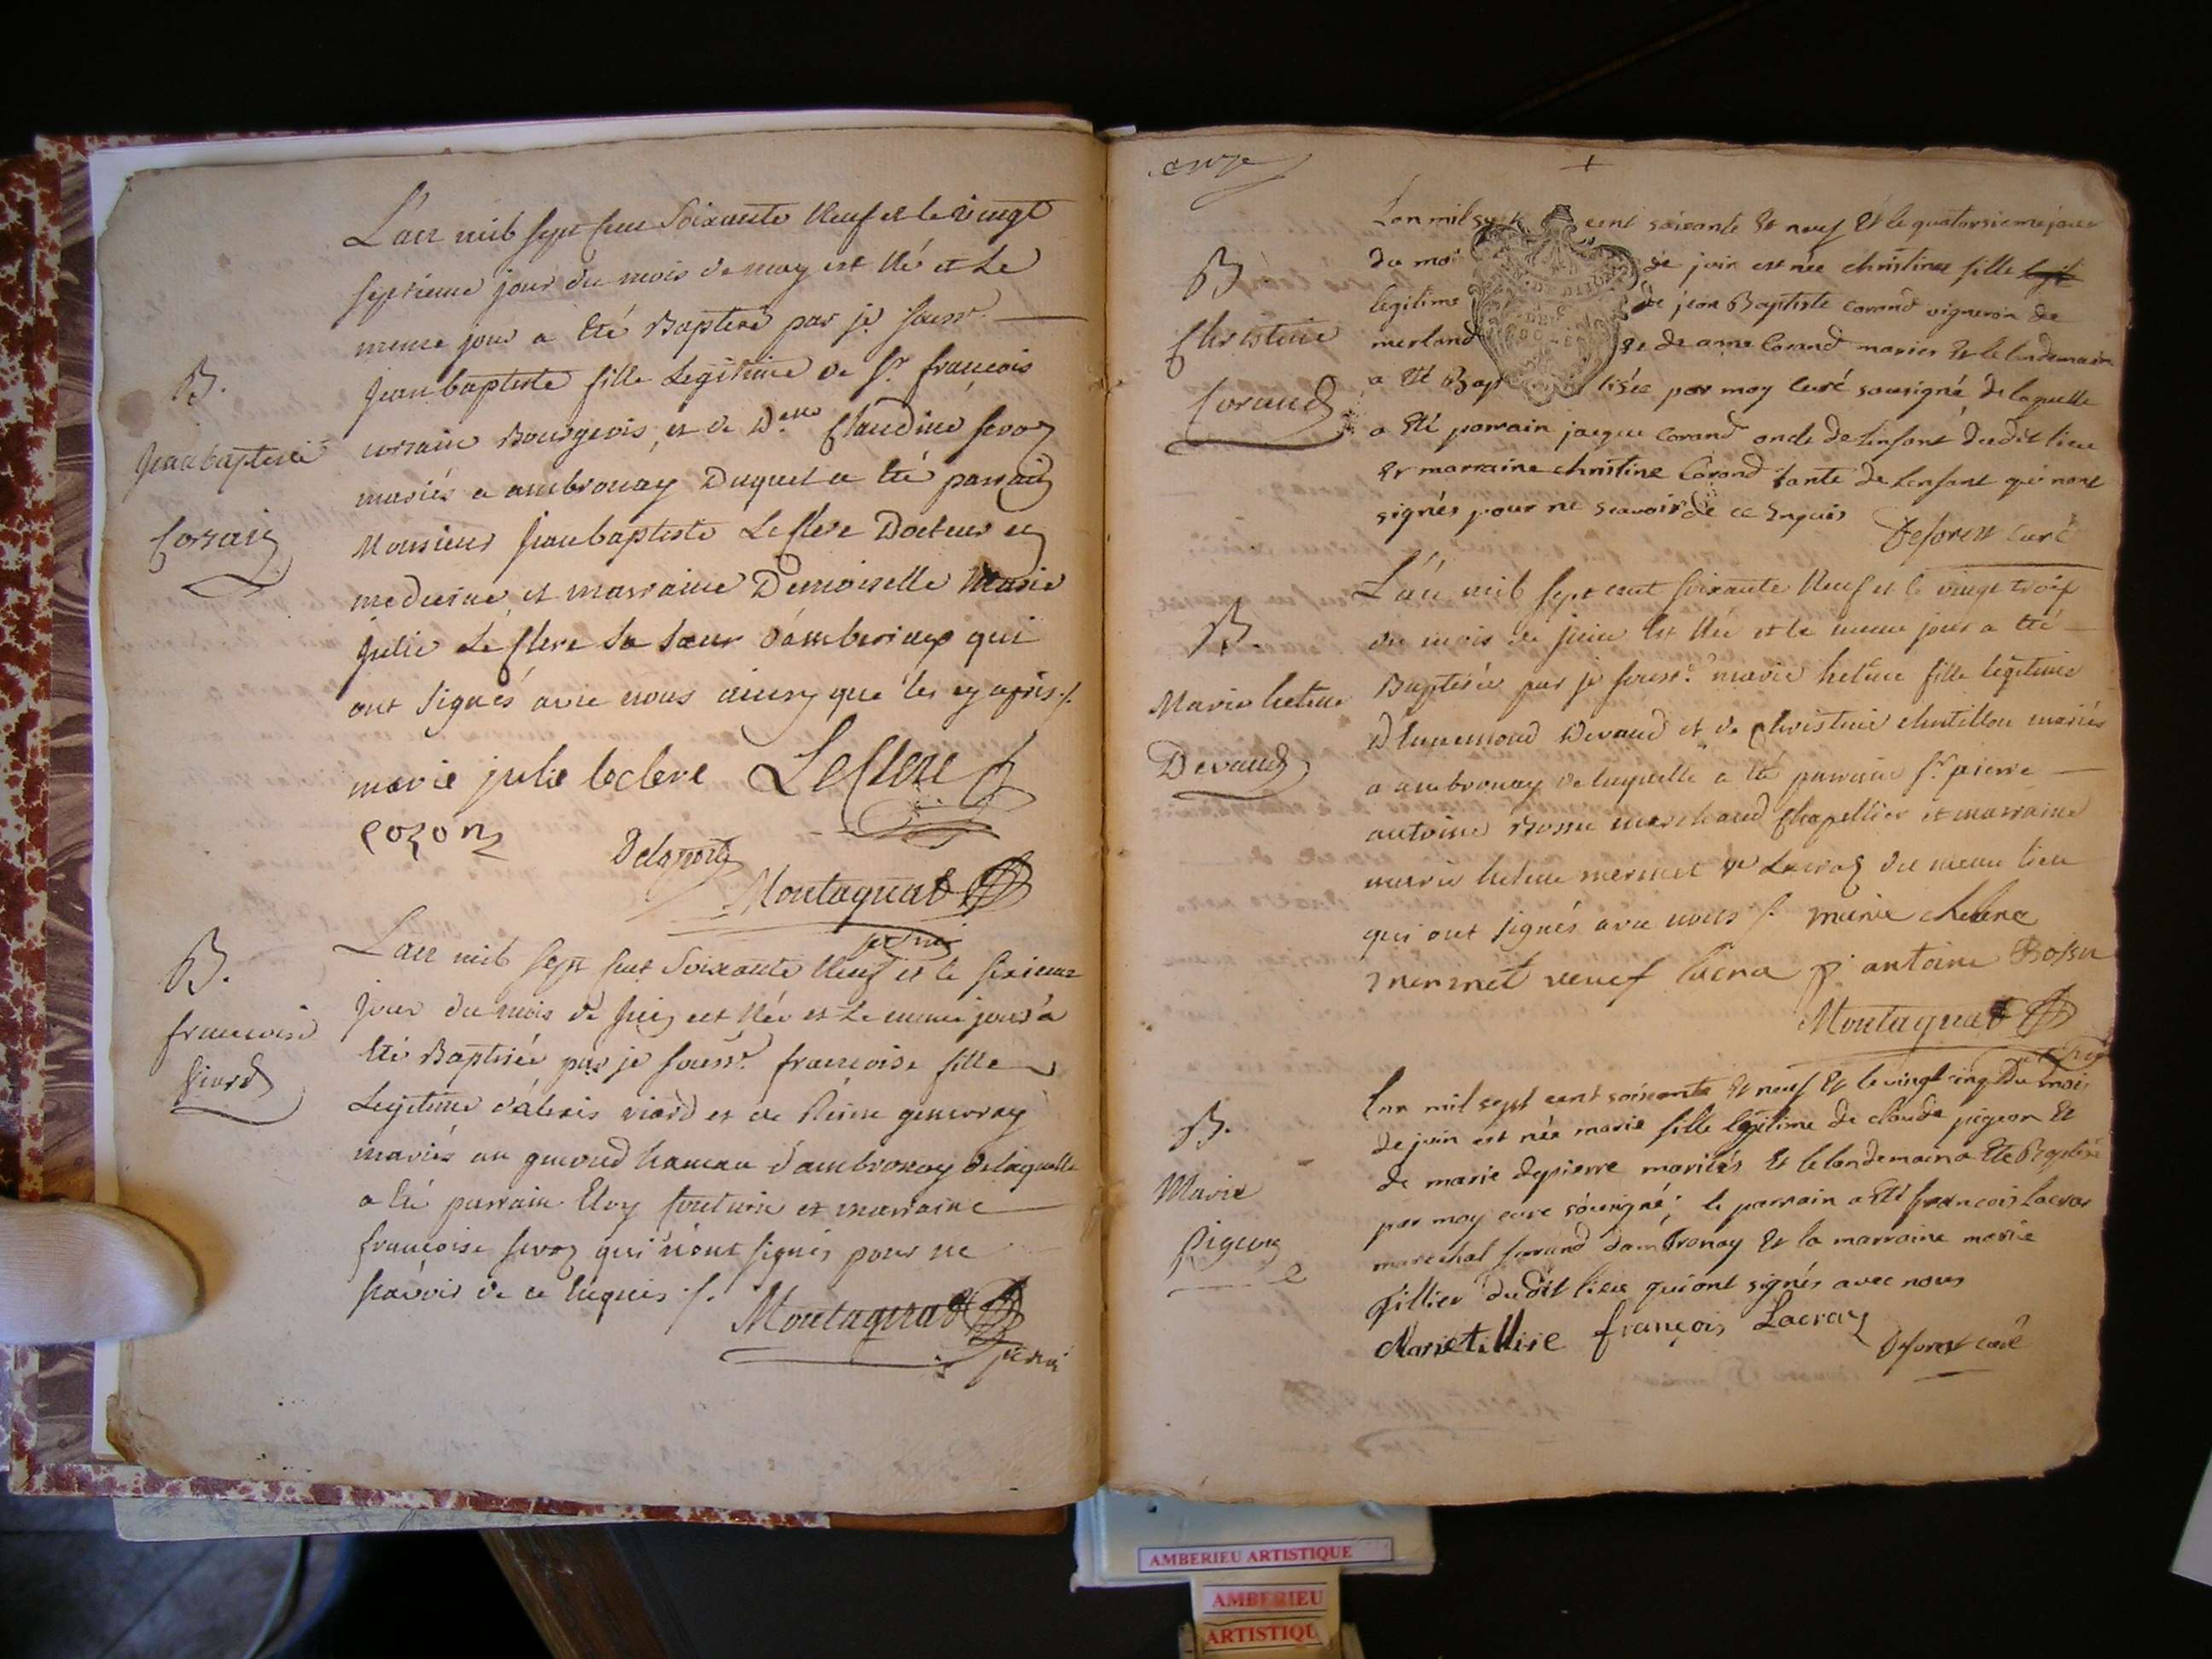 L'an mil sept cent soixante neuf et le vingt
septieme jour du mois de may est née et le
meme jour a été Baptisée par je souss.
B.
Jeanbaptiste fille Legitime de Sr. françois
Jeanbaptiste
corsain Bourgeois, et de Delle Claudine
mariés a ambronay Duquel a été parrain
Corsain
Monsieur Jeanbaptiste Leclerc Docteur en
medecine, et marraine Demoiselle Marie
Julie Le Clerc sa sœur d'amberieux qui
ont signés avec nous ainsy que les cy après ./.
marie julie leclerc LeClerc
cozon
Delaporte
Montagnat
B.
françoise
Viard
L'an mil sept cent soixante neuf et le sixieme
jour du mois de juin est née et le meme jour a
été Baptisée par je souss. françoise fille
Legitime d'alexis viard et de Reine
mariés au hameau d'ambronay delaquelle
a été parrain Eloy et marraine
françoise qui n'ont signés pour ne
savoir de ce enquis ./.
Montagnat
onze
+
B
Christine
Corand
Lan mil sept cent soixante et neuf et le quatorsieme jour
du mois de juin est née christine fille
legitime de jean Baptiste corand vigneron de
merland et de anne Corand mariés et le lendemain
a été Baptisée par moy curé sousigné, de laquelle
a été parrain jacque corand oncle de lenfant dudit lieu
et marraine christine Corand tante de lenfant qui nont
signés pour ne scavoir de ce enquis
Deforest curé
B.
Marie helene
Devaud
L'an mil sept cent soixante neuf et le vingt trois
du mois de juin est née et le meme jour a été
Baptisée par je souss. marie helene fille legitime
D'hunemond Devaud et de Christine chatillon mariés
a ambronay de laquelle a été parrain Sr. pierre
antoine Bossu marchand Chapellier et marraine
marie helene mermet ve Lacroz du meme lieu
qui ont signés avec nous ./. marie helene
mermet veuf lacra p. antoine Bossu
Montagnat
B.
Marie
Pigeon
Lan mil sept cent soixante et neuf et le vingt cinq du mois
de juin est née marie fille legitime de claude pigeon et
de marie depierre mariés et le lendemain a été Baptisée
par moy curé sousigné; le parrain a été francois lacroz
marechal ferrand dambronay et la marraine marie
tillier dudit lieu qui ont signés avec nous
Marie tillire françois Lacroz
Deforest curé
AMBERIEU ARTISTIQUE
AMBERIEU
ARTISTIQU